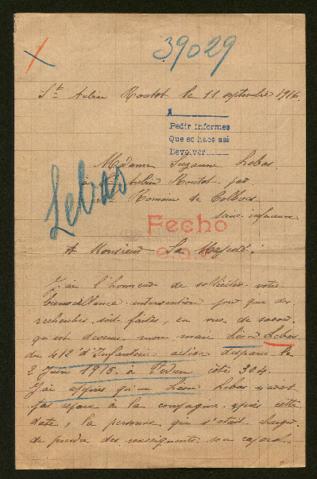 39029
St Aubin Routot le 11 septembre 1916
Pedir informes
Que se hace así
Devolver
Madame Suzanne Lebas
Lebas
Routot par
Romain de Colbosc
Seine inférieure
Fecho
A Monsieur Sa Majesté!
J'ai l'honneur de solliciter votre
bienveillance intervention pour que des
recherches soit faites, en vue de savoir
qu'est devenu mon mari Léon Lebas
du 412e d'Infanterie disparu le
2 Juin 1916 à Verdun côte 304.
J'ai appris qu'un Léon Lebas
pas à la compagnie après cette
date, la personne qui s'était chargé
de prendre des renseignements son caporal